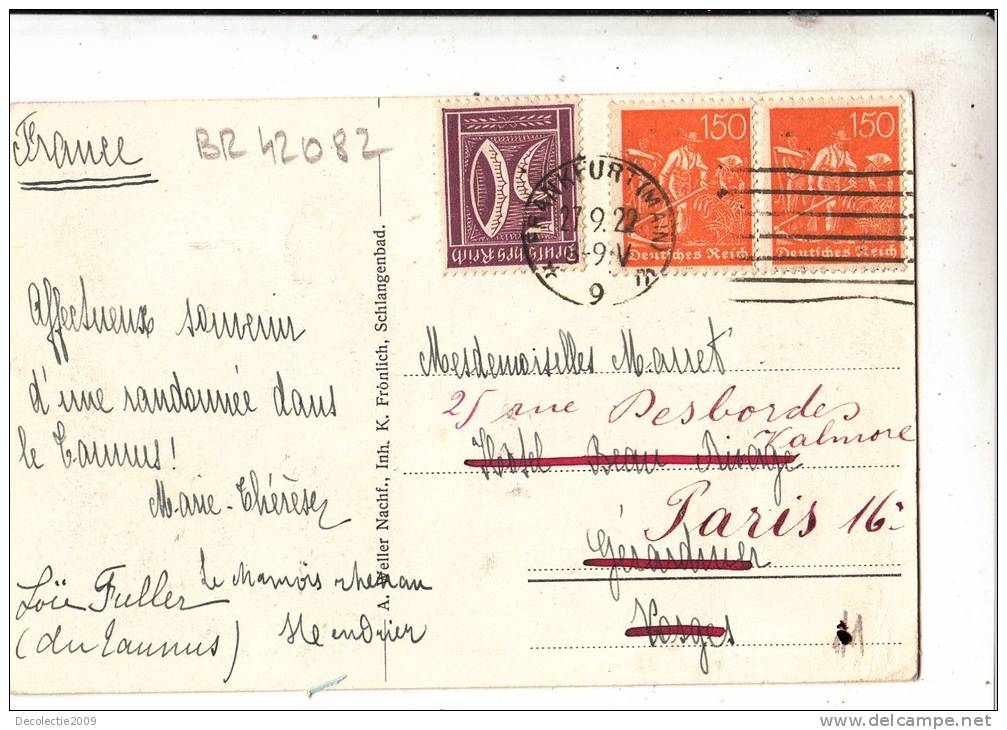 France
BR 42082
150
150
Deutsches Reich
Deutsches Reich
Deutsches Reich
FRANKFURT (MAIN)
27.9.22
8-9.V
9
Affectueux souvenir
d'une randonnée dans
le Taunus!
Marie-Thérèse
Loïe Fuller
(du Taunus)
A. Weller Nachf., Inh. K. Frönlich, Schlangenbad.
Mesdemoiselles Marret
25 rue Desbordes
Valmore
Hotel Beau Rivage
Paris 16e
Gérardmer
Vosges
Decolectie2009
www.delcampe.net